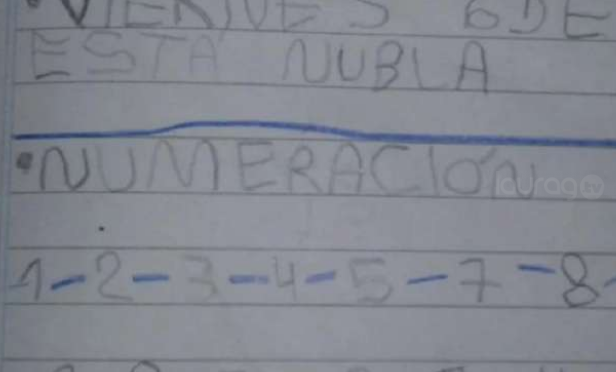 VIERNES 6 DE
ESTA NUBLA
•NUMERACIÓN
1-2-3-4-5-7-8-